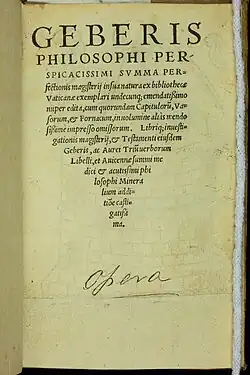 GEBERIS
PHILOSOPHI PER-
SPICACISSIMI SVMMA PER-
fectionis magisterij in sua natura ex bibliothecæ
Vaticanæ exemplari undecunq; emendatissimo
nuper edita, cum quorundam Capitulorũ, Va-
sorum, & Fornacum, in volumine alias mendo
sissime impresso omissorum. Libriq; inuesti-
gationis magisterij, & Testamenti eiusdem
Geberis, ac Aurei Triũ uerborum
Libelli, et Auicennæ summi me
dici & acutissimi phi
losophi Minera
lium addi-
tiõe casti-
gatissi
ma.
Opera